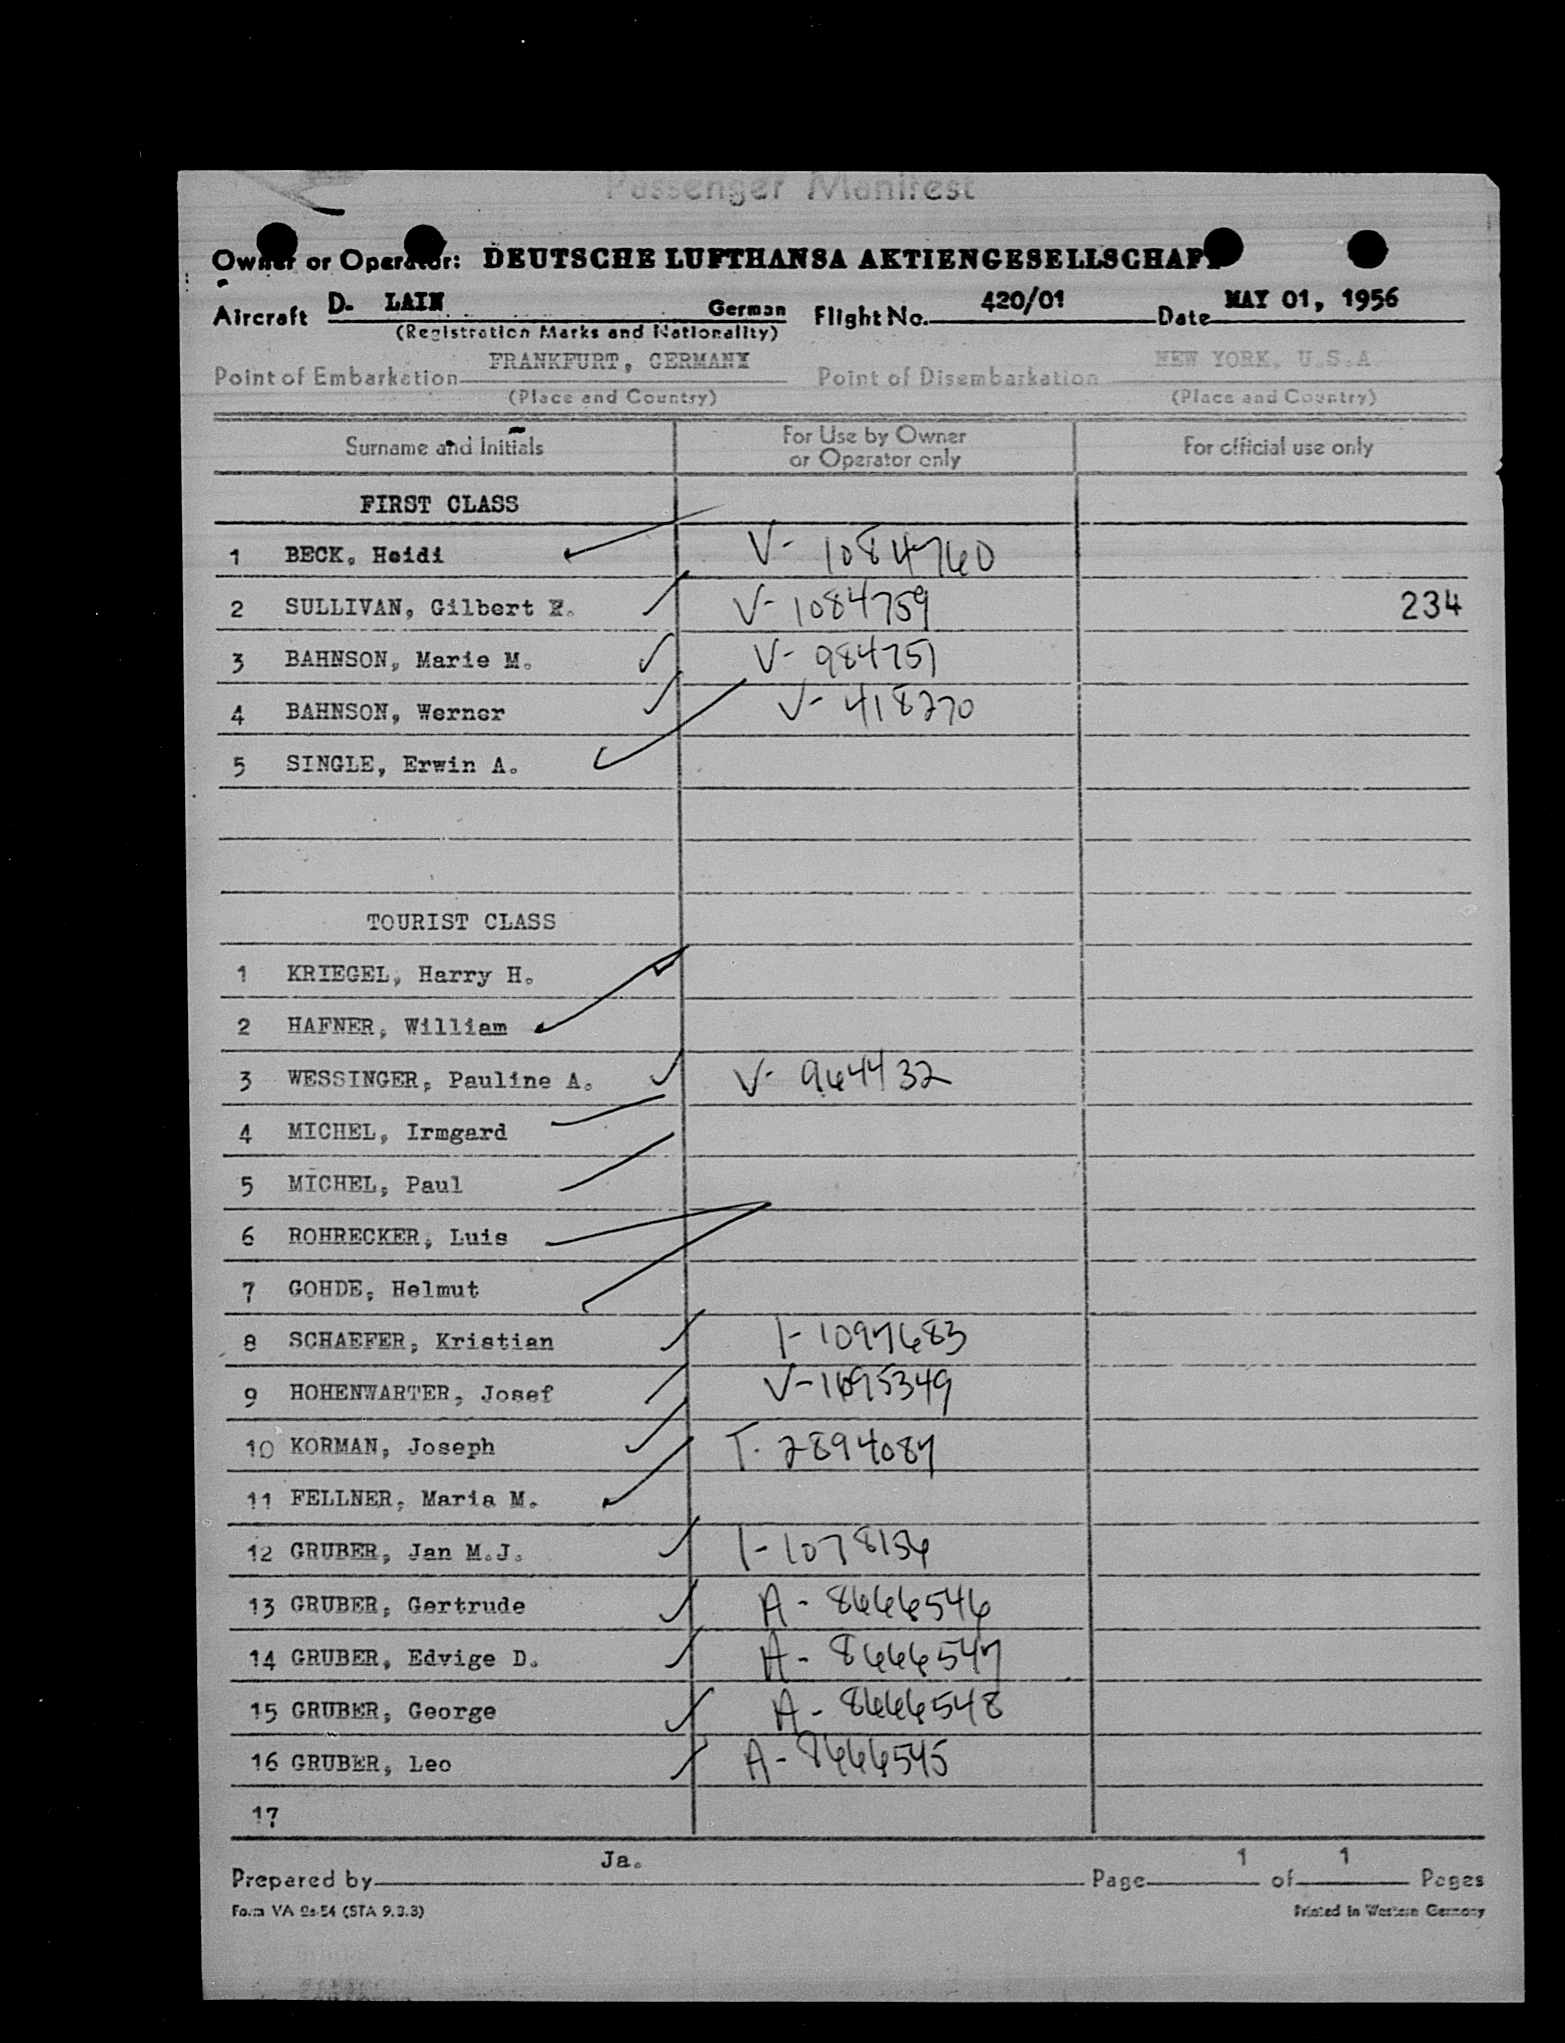 Passenger Manifest
Owner or Operator: DEUTSCHE LUFTHANSA AKTIENGESELLSCHAFT
Aircraft D. LAIN German Flight No. 420/01 Date MAY 01, 1956
(Registration Marks and Nationality)
Point of Embarkation FRANKFURT, GERMANY Point of Disembarkation NEW YORK, U.S.A
(Place and Country) (Place and Country)
Surname and Initials For Use by Owner or Operator only For official use only
FIRST CLASS
1 BECK, Heidi V- 1084760
2 SULLIVAN, Gilbert V-1084759 234
3 BAHNSON, Marie M. V- 984751
4 BAHNSON, Werner V- 418270
5 SINGLE, Erwin A.
TOURIST CLASS
1 KRIEGEL, Harry H.
2 HAFNER, William
3 WESSINGER, Pauline A. V- 964432
4 MICHEL, Irmgard
5 MICHEL, Paul
6 ROHRECKER, Luis
7 GOHDE, Helmut
8 SCHAEFER, Kristian I-1097683
9 HOHENWARTER, Josef V-1695349
10 KORMAN, Joseph T. 2894087
11 FELLNER, Maria M.
12 GRUBER, Jan M.J. I-1078136
13 GRUBER, Gertrude A- 8666546
14 GRUBER, Edvige D. A- 8666547
15 GRUBER, George A- 8666548
16 GRUBER, Leo A-8666545
17
Prepared by Ja. Page 1 of 1 Pages
Form VA (STA 9.3.3) Printed in Western Germany